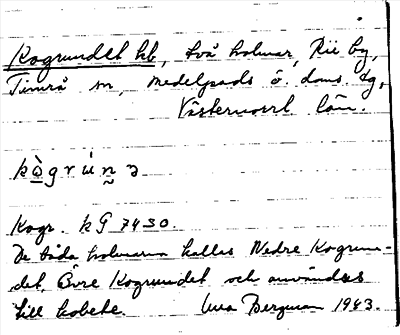 Kogrundet hb, två holmar, Rie by,
Timrå sn, Medelpads ö. doms. dg,
Västernorrl län.
kògrúṇə
Kogr. k G 7430.
De båda holmarna kallas Nedre Kogrun-
det, Övre Kogrundet och användes
till kobete. Bergman 1943.